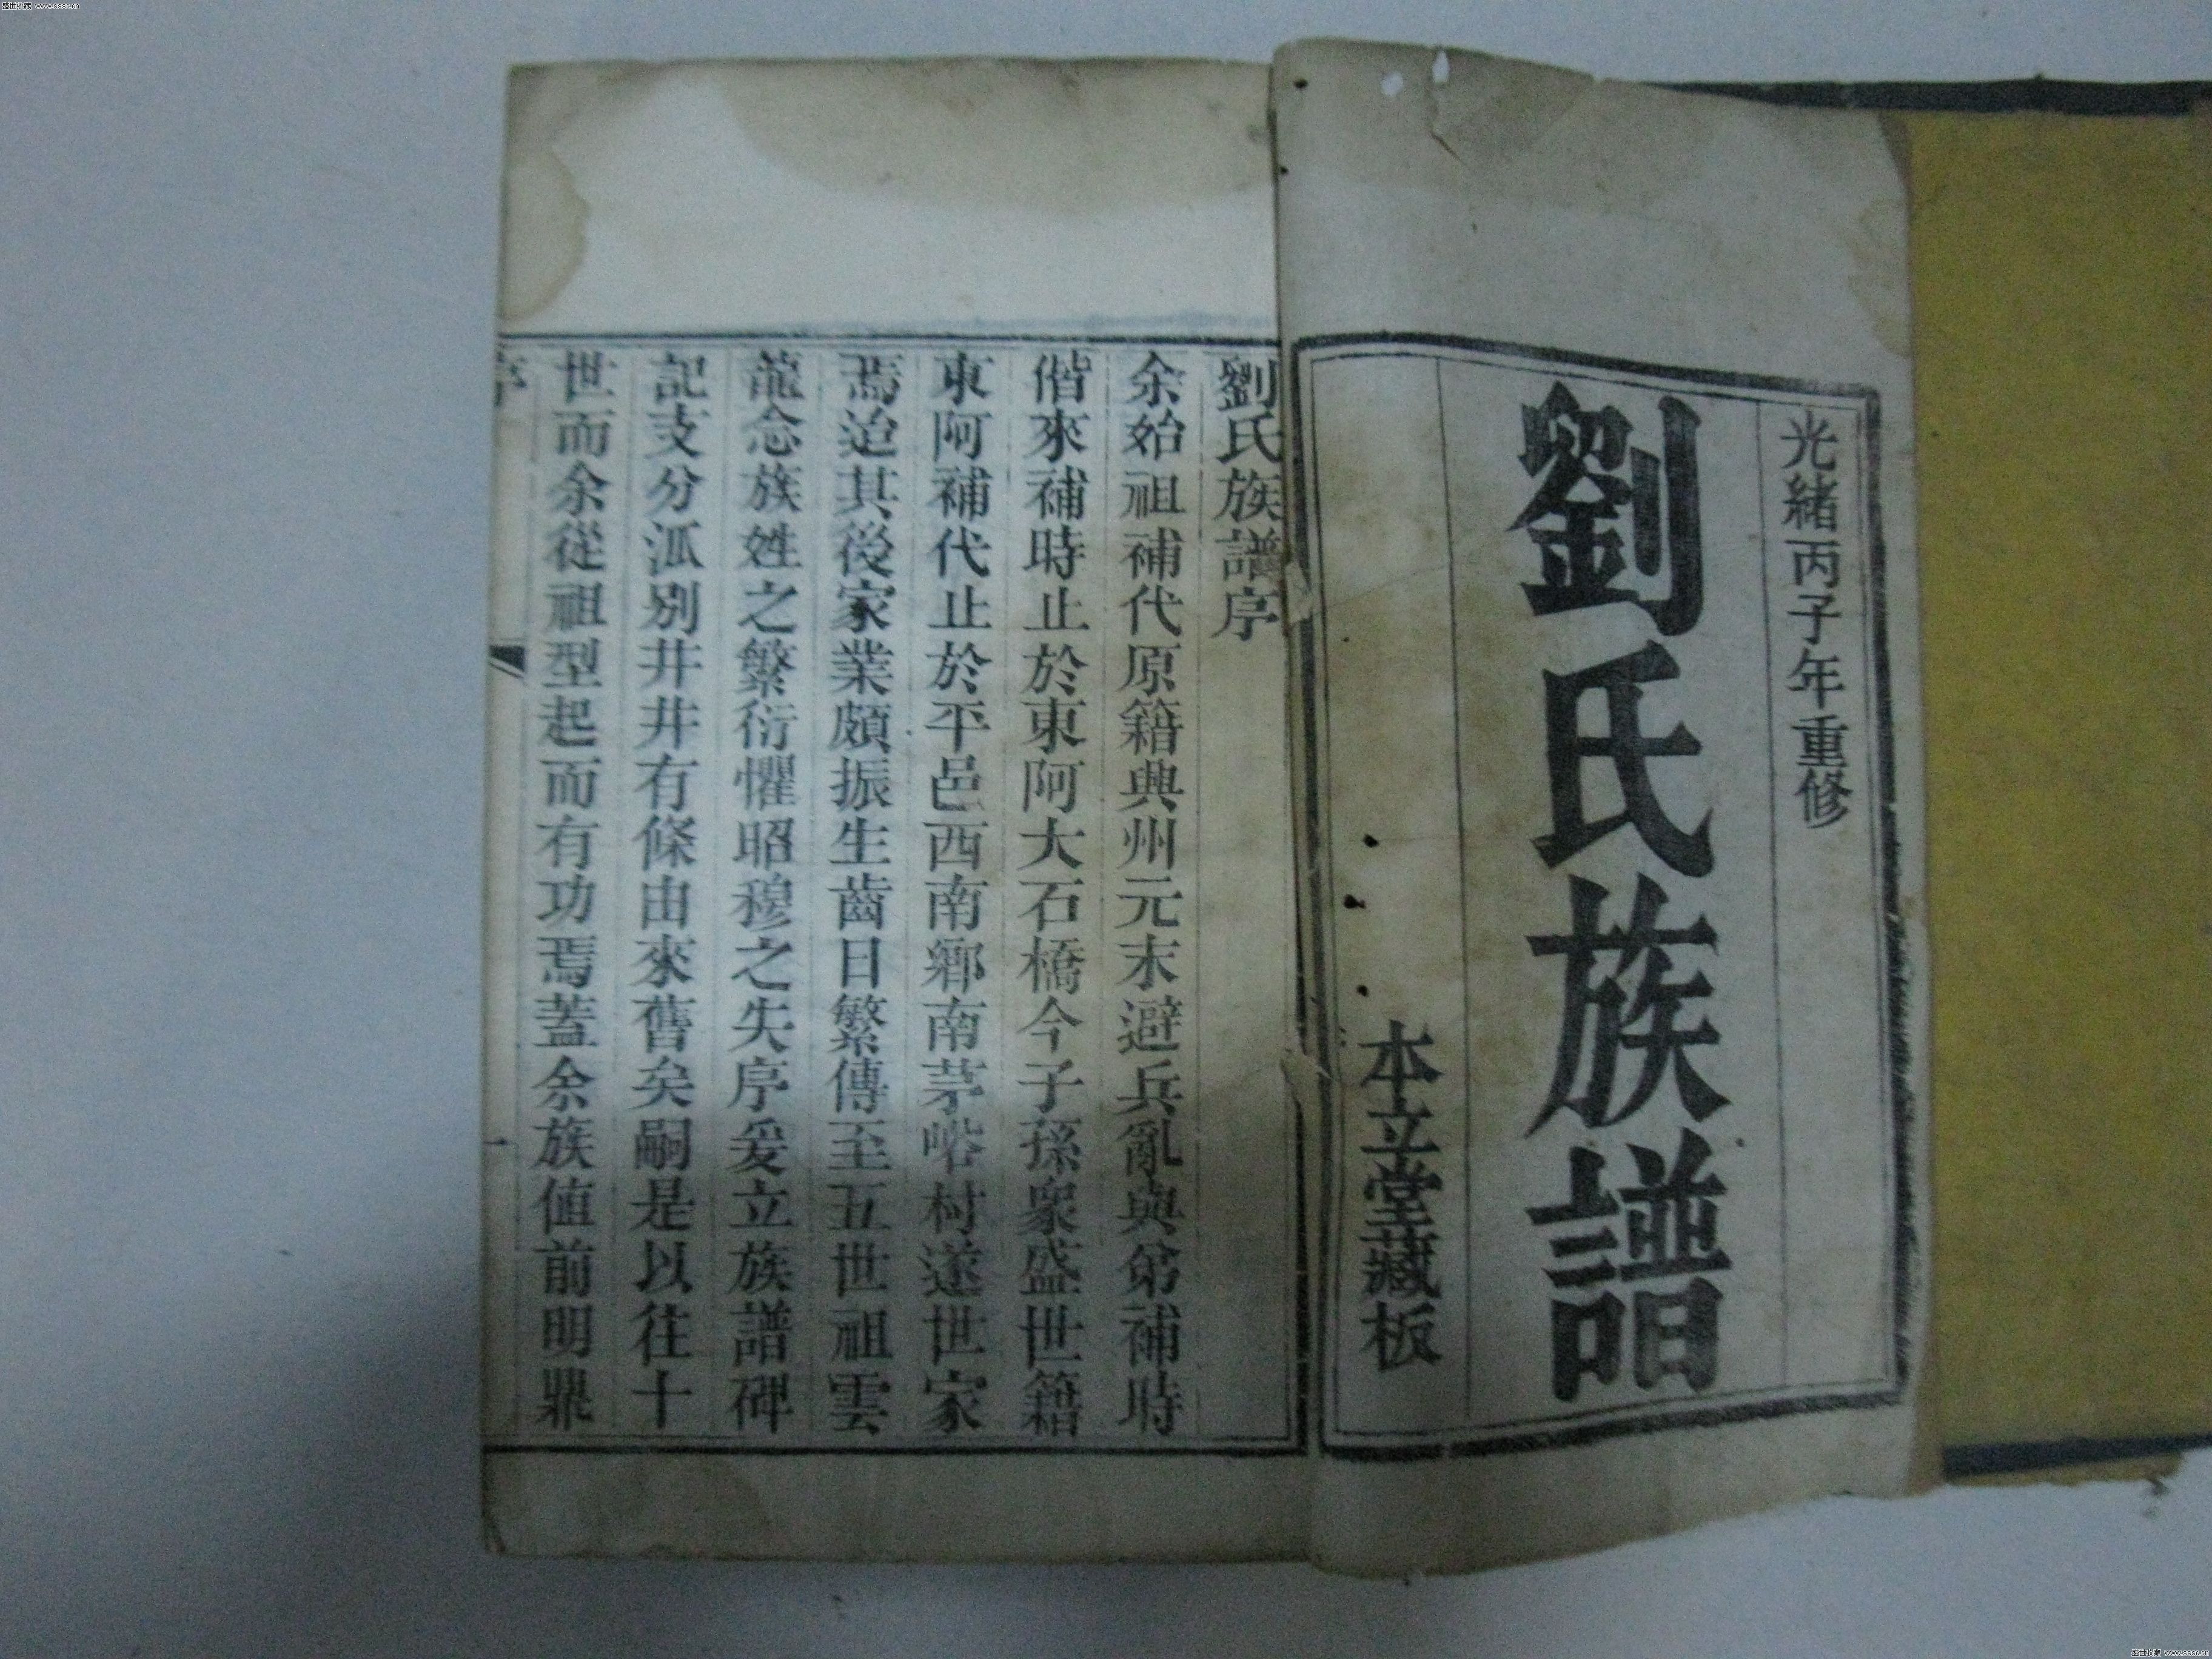 光緒丙子年重修
劉氏族譜
本立堂藏板
劉氏族譜序
余始祖補代原籍兗州元末避兵亂與弟補時
偕來補時止於東阿大石橋今子孫眾盛世籍
東阿補代止於平邑西南鄉南茅峪村遂世家
焉迨其後家業頗振生齒日繁傳至五世祖雲
龍念族姓之繁衍懼昭穆之失序爰立族譜碑
記支分派別井井有條由來舊矣嗣是以往十
世而余從祖型起而有功焉蓋余族值前明鼎
序
一
盛世收藏 www.sssc.cn
盛世收藏 www.sssc.cn